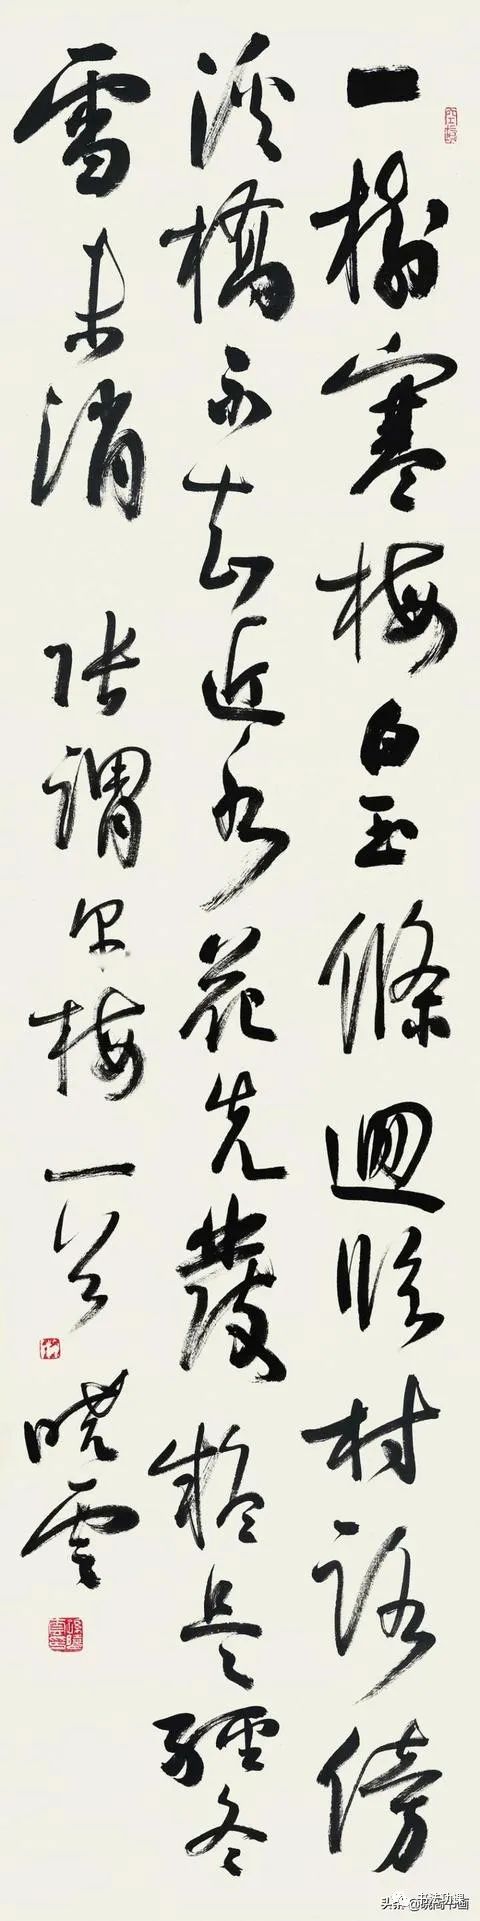 一樹寒梅白玉條迴臨村路傍
溪橋不知近水花先發疑是經冬
雪未消 張謂早梅一首 曉雲
书法功课
头条